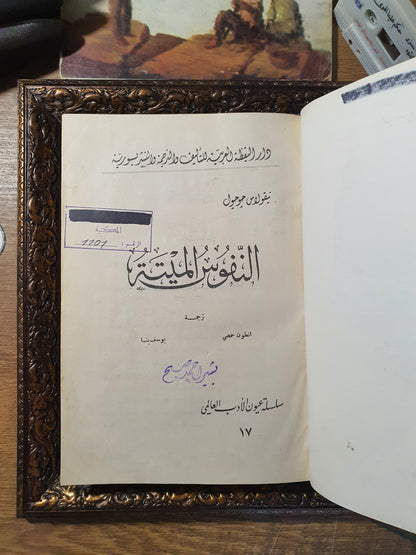 دار اليقظة العربية للتأليف والترجمة والنشر بسورية
نيقولاس جوجول
المكتبة
الرقم: 1101
النفوس الميتة
ترجمة
انطون حمصي
يوسف سبا
سلسلة عيون الأدب العالمي
١٧